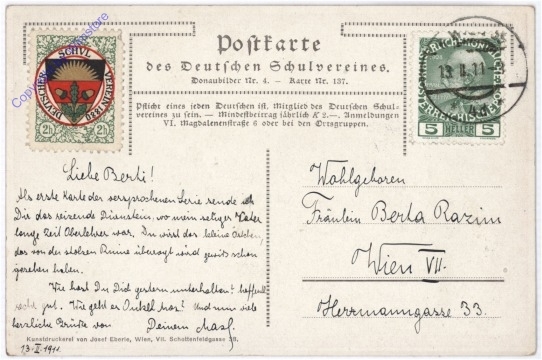 Postkarte
des Deutschen Schulvereines.
Donaubilder Nr. 4. — Karte Nr. 137.
Pflicht eines jeden Deutschen ist, Mitglied des Deutschen Schul-
vereines zu sein. — Mindestbeitrag jährlich K 2.—. Anmeldungen
VI. Magdalenenstraße 6 oder bei den Ortsgruppen.
DEUTSCHER SCHVL VEREIN 1880
2h 2h
5 HELLER 5
Liebe Berti!
Als erste Karte der versprochenen Serie sende ich
Dir das reizende Dürnstein, wo mein seliger Vater
lange Zeit Oberlehrer war. Du wirst das kleine Örtchen,
das von der stolzen Ruine überragt wird gewiß schon
gesehen haben.
Wie hast Du Dich gestern unterhalten? hoffentl.
recht gut. Wie geht es Onkel ? Und nun viele
herzliche Grüße von Deinem
13. II. 1911.
Wohlgeboren
Fräulein Berta Razim
Wien VII.
Herrmanngasse 33.
Kunstdruckerei von Josef Eberle, Wien, VII. Schottenfeldgasse 38.